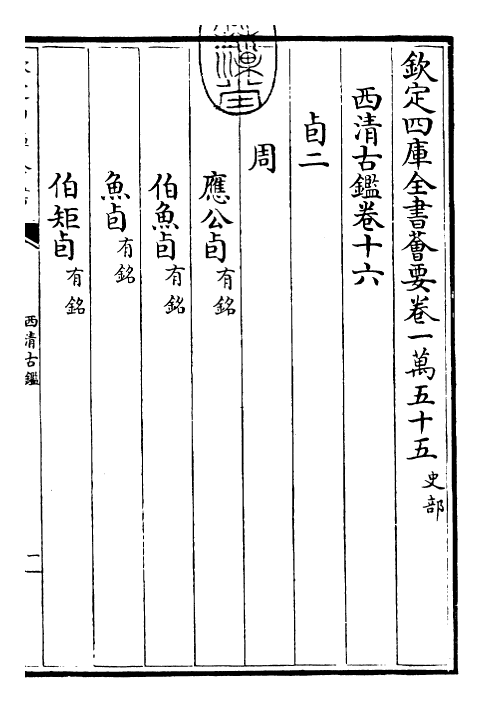 欽定四庫全書薈要卷一萬五十五 史部
西清古鑑卷十六
卣二
周
應公卣 有銘
伯魚卣 有銘
魚卣 有銘
伯矩卣 有銘
西清古鑑
一